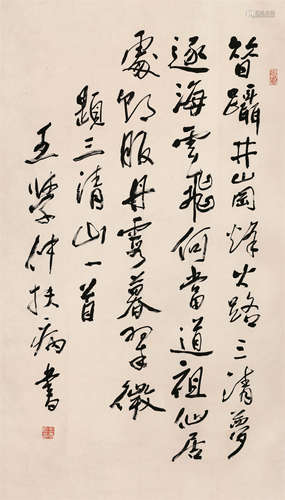 昔躡井崗烽火路三清夢
逐海雲飛何當道祖仙居
處朝服丹霞暮翠微
題三清山一首
王學仲扶病書